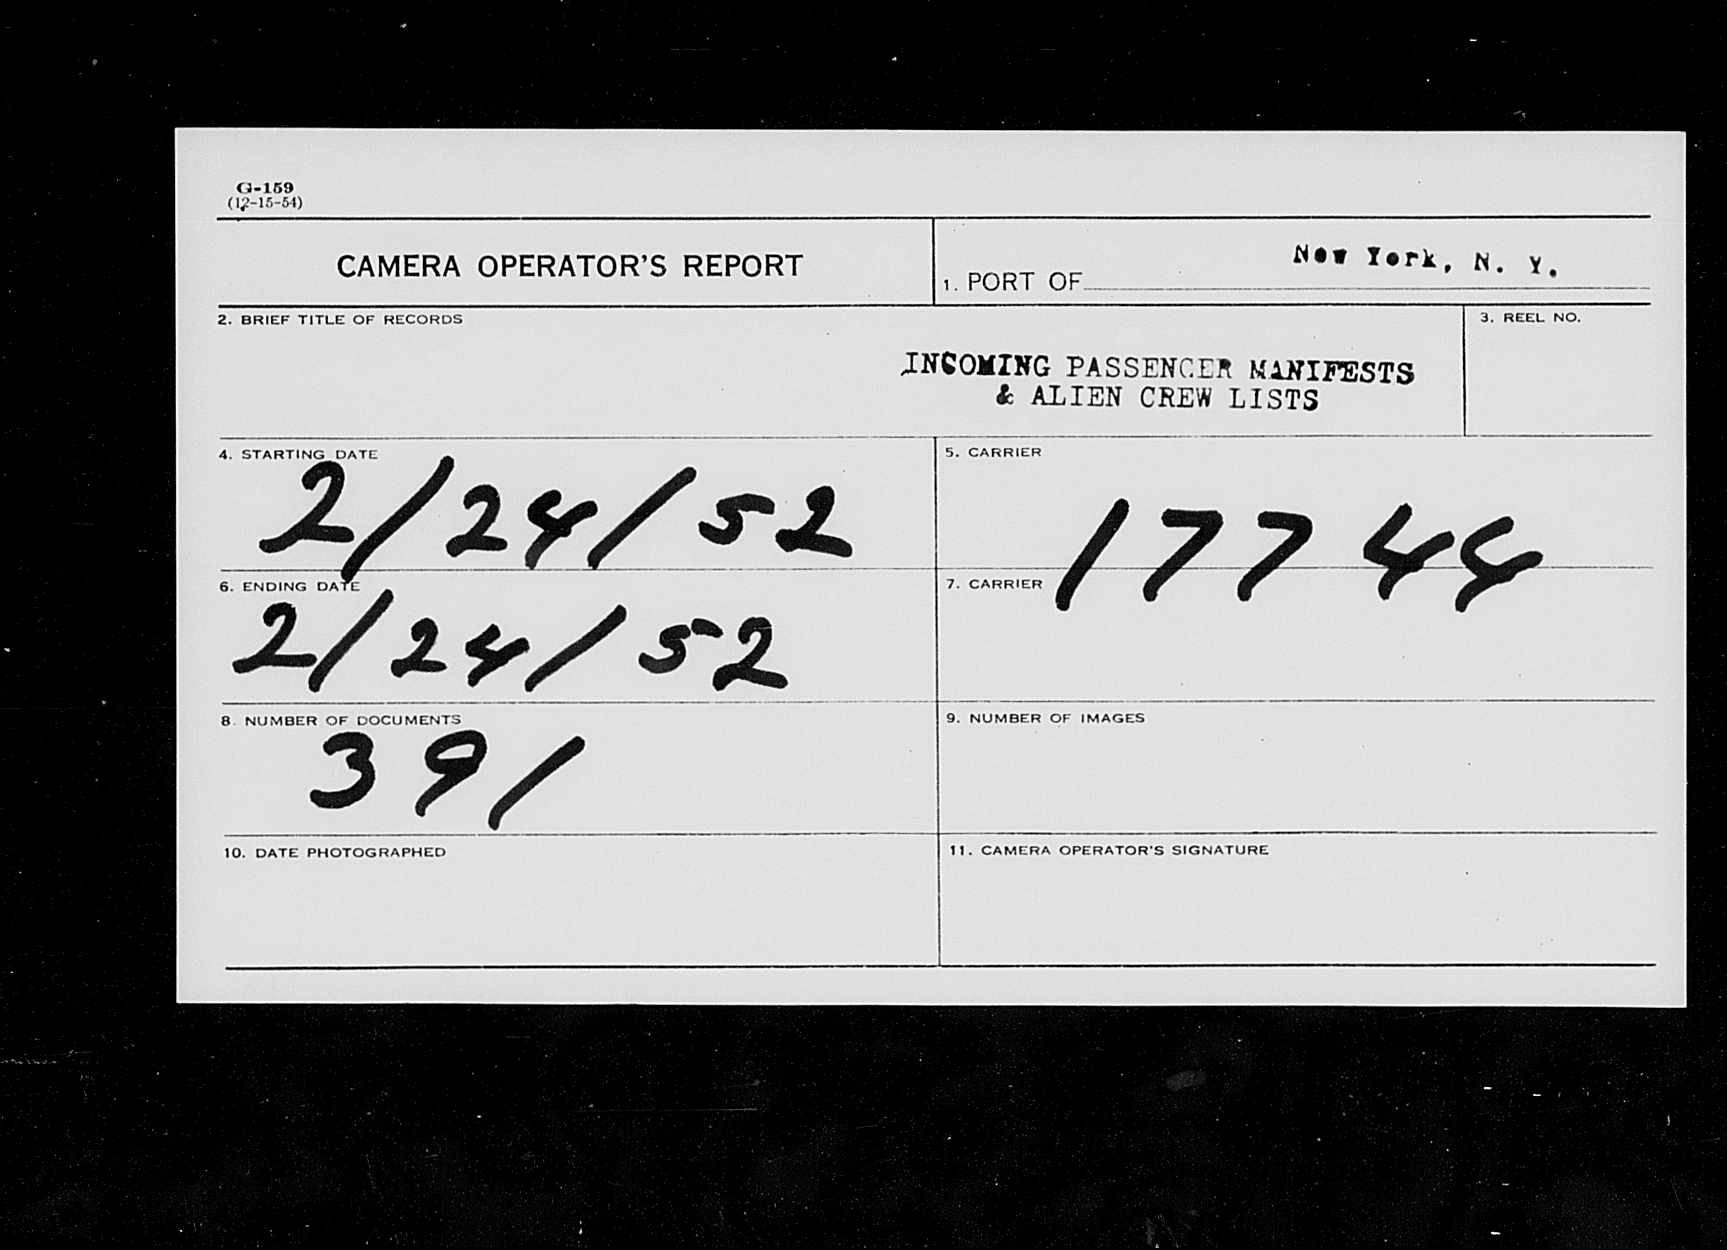 G-159
(12-15-54)
CAMERA OPERATOR'S REPORT
1. PORT OF New York, N. Y.
2. BRIEF TITLE OF RECORDS
INCOMING PASSENGER MANIFESTS
& ALIEN CREW LISTS
3. REEL NO.
4. STARTING DATE
2/24/52
5. CARRIER
17744
6. ENDING DATE
2/24/52
7. CARRIER
8. NUMBER OF DOCUMENTS
391
9. NUMBER OF IMAGES
10. DATE PHOTOGRAPHED
11. CAMERA OPERATOR'S SIGNATURE